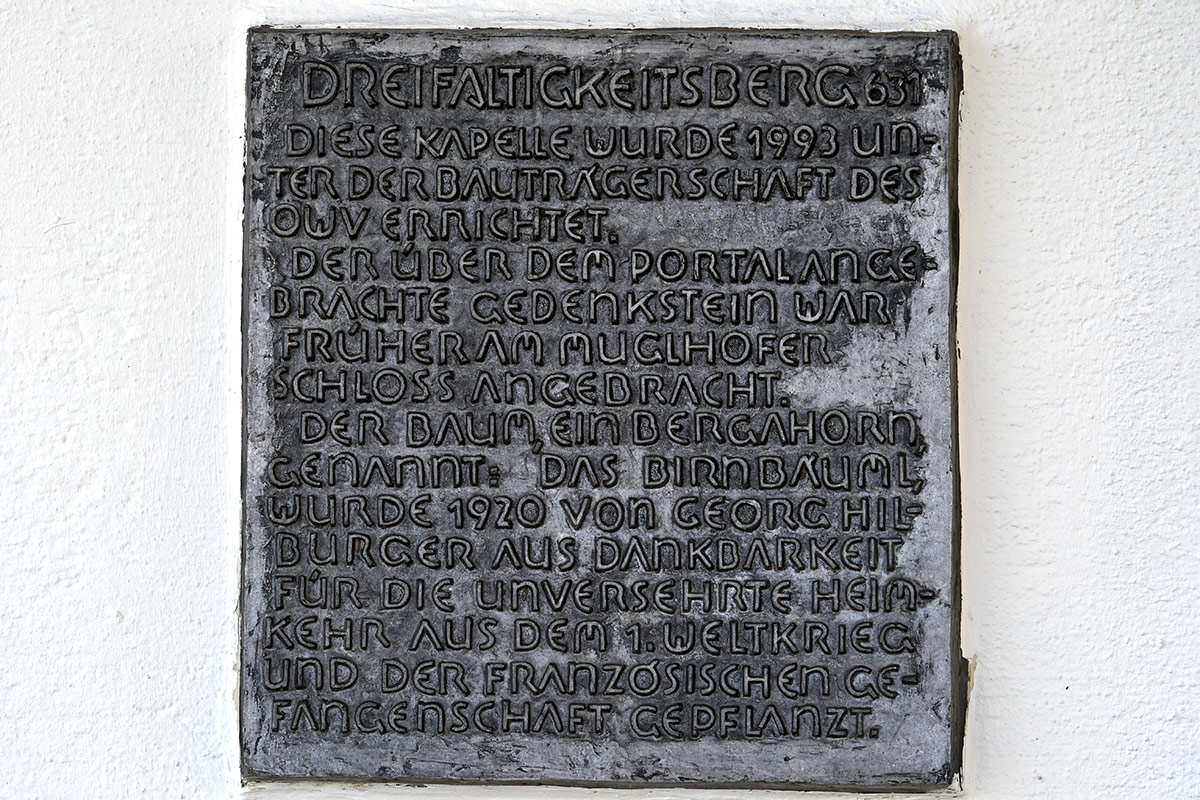 DREIFALTIGKEITSBERG 631
DIESE KAPELLE WURDE 1993 UN-
TER DER BAUTRÄGERSCHAFT DES
OWV ERRICHTET.
DER ÜBER DEM PORTAL ANGE-
BRACHTE GEDENKSTEIN WAR
FRÜHER AM MUGLHOFER
SCHLOSS ANGEBRACHT.
DER BAUM, EIN BERGAHORN,
GENANNT: 'DAS BIRNBÄUML,
WURDE 1920 VON GEORG HIL-
BURGER AUS DANKBARKEIT
FÜR DIE UNVERSEHRTE HEIM-
KEHR AUS DEM 1. WELTKRIEG
UND DER FRANZÖSISCHEN GE-
FANGENSCHAFT GEPFLANZT.